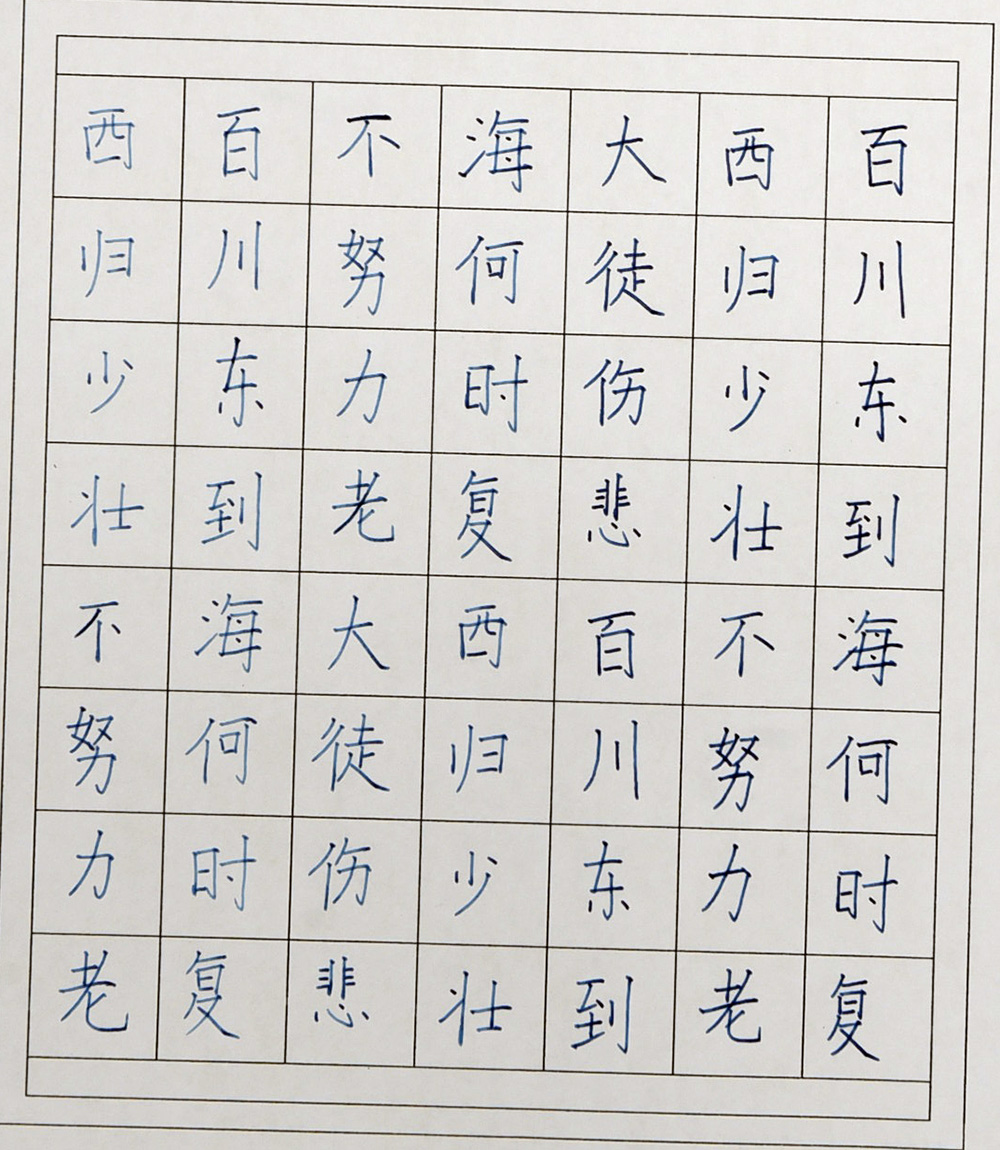 百川东到海何时复
西归少壮不努力老
大徒伤悲百川东到
海何时复西归少壮
不努力老大徒伤悲
百川东到海何时复
西归少壮不努力老